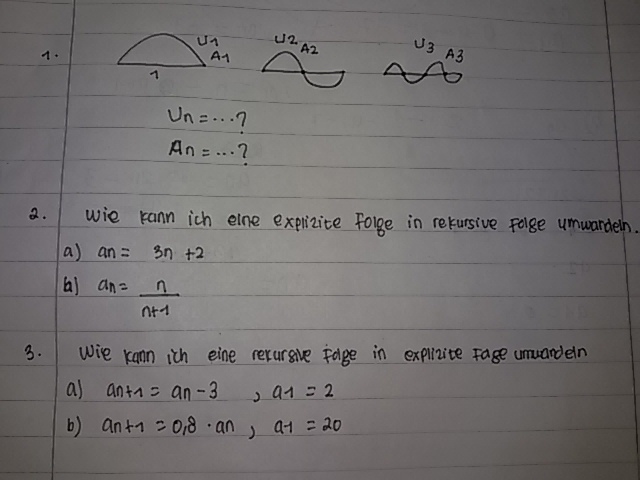 1. U1 A1 1 U2 A2 U3 A3
Un = ...?
An = ...?
2. Wie kann ich eine explizite Folge in rekursive Folge umwandeln.
a) an = 3n + 2
b) an = n/n+1
3. Wie kann ich eine rekursive Folge in explizite Fage umwandeln
a) an+1 = an - 3 , a1 = 2
b) an+1 = 0,8 · an , a1 = 20